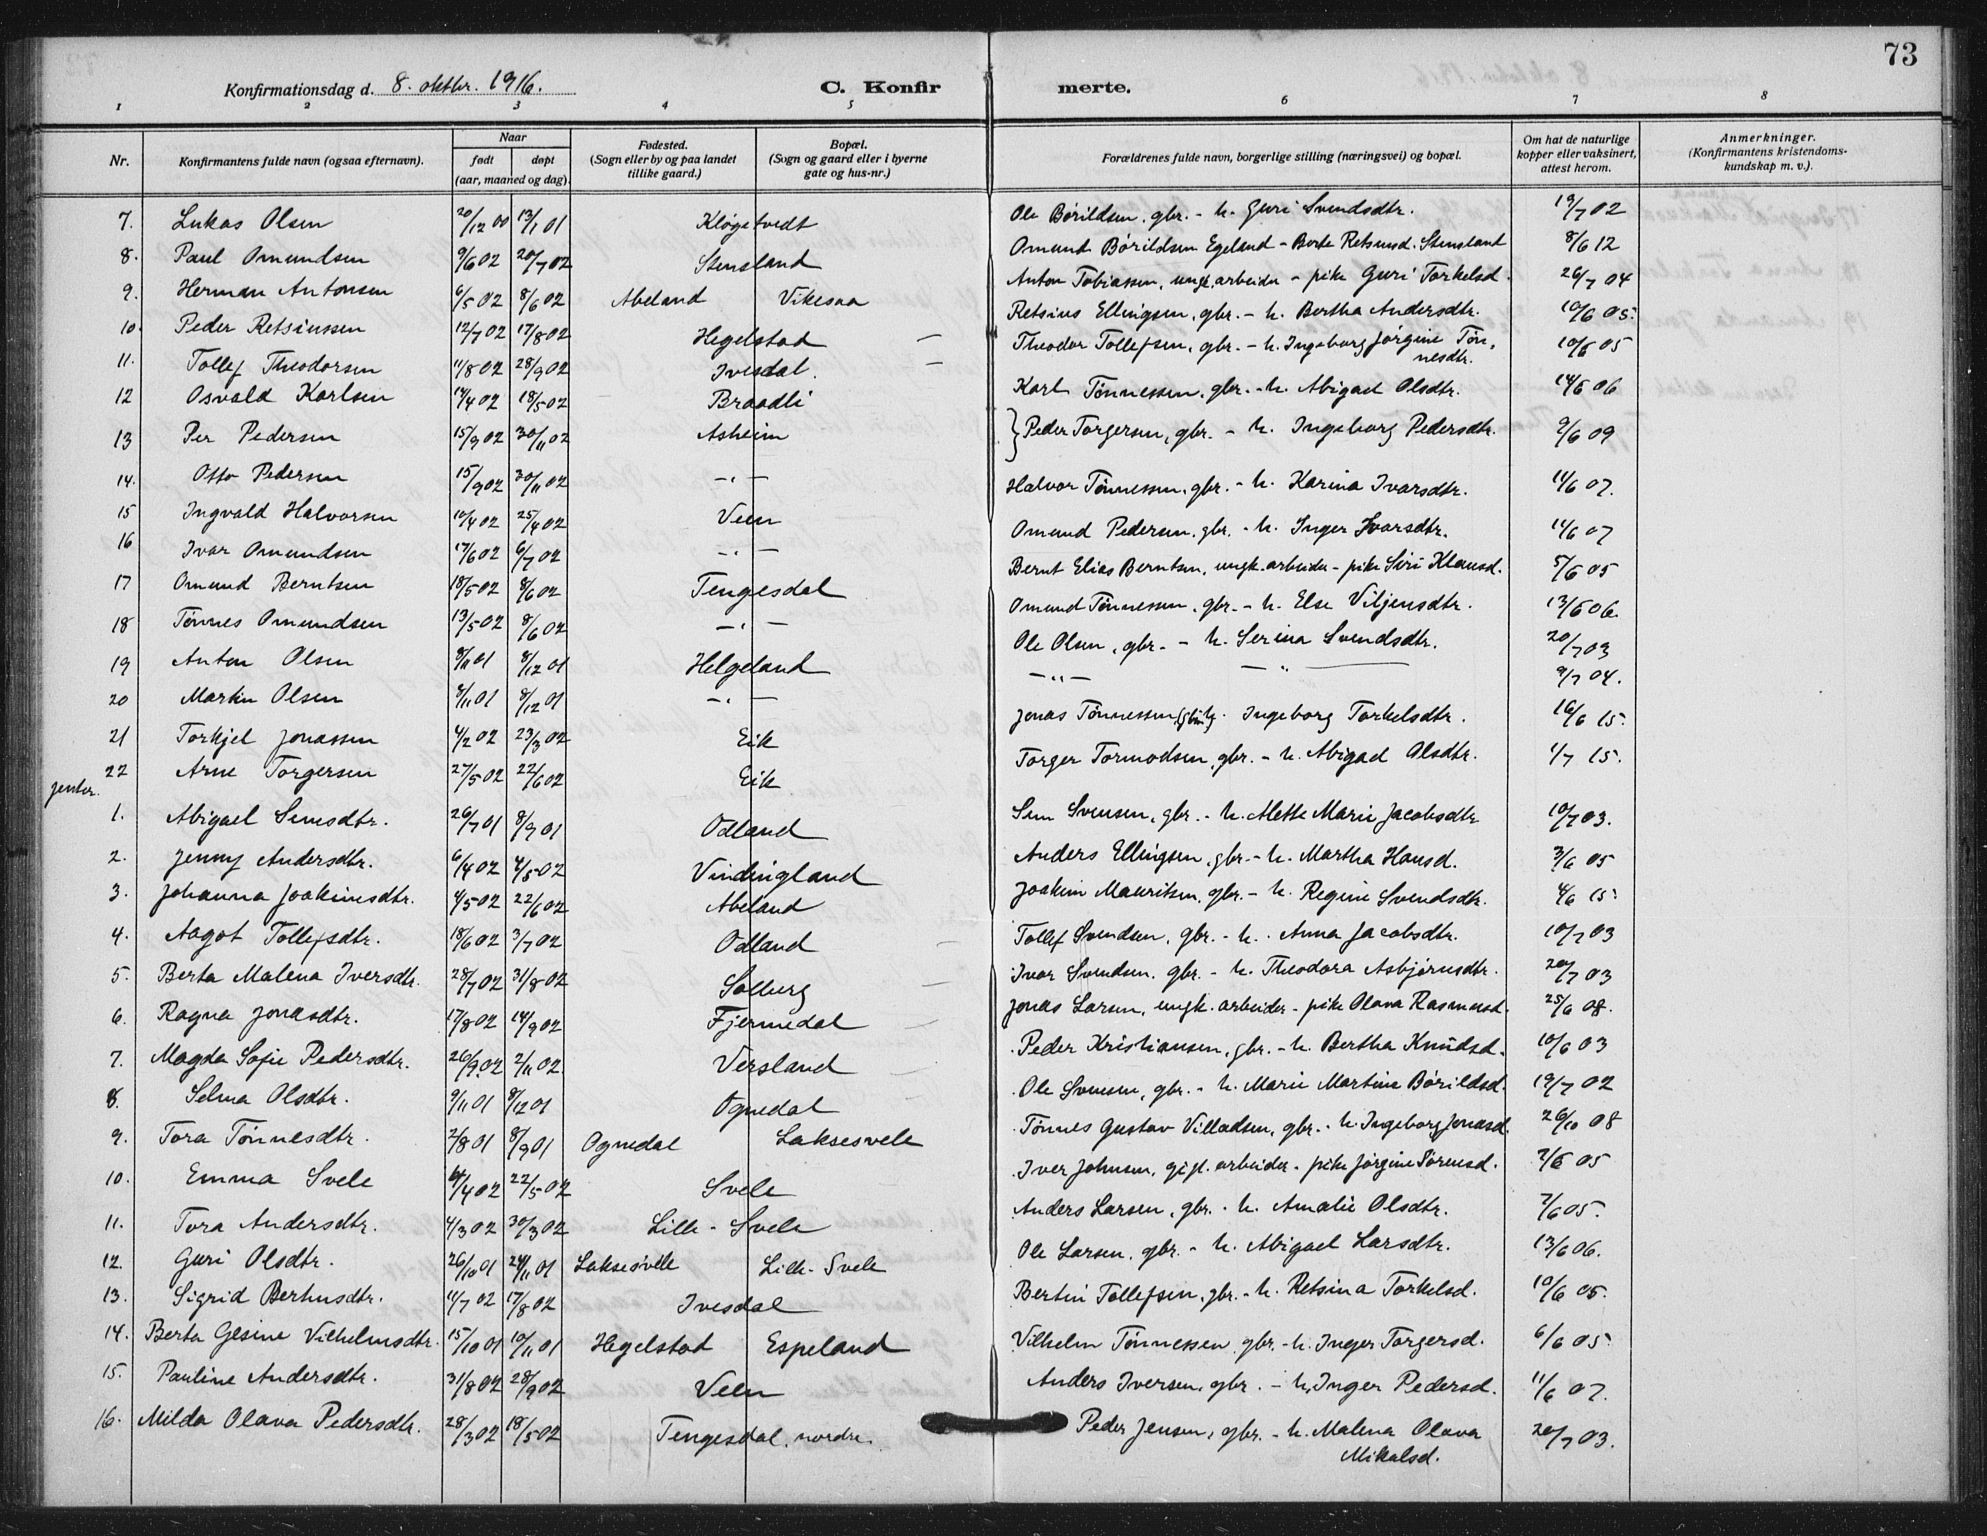 73
Konfirmationsdag d. 8. oktbr. 1916. C. Konfirmerte.
1 2 3 4 5 6 7 8
Nr. Konfirmantens fulde navn (ogsaa efternavn). Naar født døpt (aar, maaned og dag). Fødested. (Sogn eller by og paa landet tillike gaard.) Bopæl. (Sogn og gaard eller i byerne gate og hus-nr.) Forældrenes fulde navn, borgerlige stilling (næringsvei) og bopæl. Om hat de naturlige kopper eller vaksinert, attest herom. Anmerkninger. (Konfirmantens kristendomskundskap m. v.).
7. Lukas Olsen 20/12 00 13/1 01 Kløgetvedt Ole Børildsen, gbr. - h. Guri Svendsdtr. 19/7 02
8. Paul Omundsen 9/6 02 20/7 02 Stensland Omund Børildsen Egeland - Berte Retsiusd. Stensland 8/6 12
9. Herman Antonsen 6/5 02 8/6 02 Abeland Vikesaa Anton Tobiassen, ungk. arbeider - pike Guri Torkelsd. 26/7 04
10. Peder Retsiussen 12/7 02 17/8 02 Hegelstad Retsius Ellingsen, gbr. - h. Bertha Andersdtr. 10/6 05.
11. Tollef Theodorsen 11/8 02 28/9 02 Ivesdal. Theodor Tollefsen, gbr. - h. Ingeborg Jørgine Tønnesdtr. 10/6 05
12 Osvald Karlsen 14/4 02 18/5 02 Braadli Karl Tønnessen, gbr. - h. Abigael Olsdtr. 14/6 06
13 Per Pedersen 15/9 02 30/11 02 Asheim } Peder Torgersen, gbr. - h. Ingeborg Pedersdtr. 9/6 09
14. Otto Pedersen 15/9 02 30/11 02 - " -
15 Ingvald Halvorsen 10/4 02 25/4 02 Veen Halvor Tønnessen, gbr. - h. Karina Ivarsdtr. 11/6 07.
16 Ivar Omundsen 17/6 02 6/7 02 - " - Omund Pedersen, gbr. - h. Inger Ivarsdtr. 11/6 07
17 Omund Berntsen 18/5 02 8/6 02 Tengesdal Bernt Elias Berntsen, ungk. arbeider - pike Siri Klausd. 5/6 05
18 Tønnes Omundsen 13/5 02 8/6 02 - " - Omund Tønnessen, gbr. - h. Else Viljensdtr. 13/6 06.
19 Anton Olsen 8/11 01 8/12 01 Helgeland Ole Olsen, gbr. - h. Serina Svendsdtr. 20/7 03
20 Martin Olsen 8/11 01 8/12 01 - " - - " - - " - 9/7 04.
21 Torkjel Jonassen 4/2 02 23/3 02 Eik Jonas Tønnessen (gbr.) h. Ingeborg Torkelsdtr. 16/6 15.
22 Arne Torgersen 27/5 02 22/6 02 Eik Torger Tormodsen, gbr. - h. Abigael Olsdtr. 1/7 15.
jenter.
1. Abigael Semsdtr. 26/7 01 8/9 01 Odland Sem Svensen, gbr. - h. Alette Marie Jacobsdtr 10/7 03.
2. Jenny Andersdtr. 6/4 02 4/5 02 Vindingland Anders Ellingsen, gbr. - h. Martha Hansd. 3/6 05
3. Johanna Joakimsdtr. 4/5 02 22/6 02 Abeland Joakim Mauritsen, gbr. - h. Regine Svendsdtr. 4/6 15.
4. Aagot Tollefsdtr. 18/6 02 3/7 02 Odland Tollef Svendsen, gbr. - h. Anna Jacobsdtr. 10/7 03
5. Berta Malena Iversdtr. 28/7 02 31/8 02 Solberg Ivar Svendsen, gbr. - h. Theodora Asbjørnsdtr. 20/7 03
6. Ragna Jonasdtr. 17/8 02 14/9 02 Fjermedal Jonas Larsen, ungk. arbeider - pike Olava Rasmusd. 25/6 08.
7. Magda Sofie Pedersdtr. 26/9 02 2/11 02 Versland Peder Kristiansen, gbr. - h. Bertha Knudsd. 10/6 03
8. Selma Olsdtr. 9/11 01 8/12 01 Ognedal Ole Svensen, gbr. - h. Marie Martine Børildsd. 19/7 02
9. Tora Tønnesdtr. 2/8 01 8/9 01 Ognedal Laksesvele Tønnes Gustav Villadsen, gbr. - h. Ingeborg Jonasd. 26/10 08
10. Emma Svele 4/4 02 22/5 02 Svele Iver Johnsen, gift. arbeider - pike Jørgine Sørensd. 2/6 05
11. Tora Andersdtr. 4/3 02 30/3 02 Lille-Svele Anders Larsen, gbr. - h. Amalie Olsdtr. 2/6 05.
12. Guri Olsdtr. 26/10 01 24/11 01 Laksesvele Lille-Svele Ole Larsen, gbr. - h. Abigael Larsdtr. 13/6 06.
13. Sigrid Berthusdtr. 11/7 02 17/8 02 Ivesdal Bertin Tollefsen, gbr. - h. Retsina Torkelsd. 10/6 05.
14. Berta Gesine Vilhelmsdtr. 15/10 01 10/11 01 Hegelstad Espeland Vilhelm Tønnessen gbr. - h. Inger Torgersd. 6/6 05.
15. Pauline Andersdtr. 31/8 02 28/9 02 Veen Anders Iversen, gbr. - h. Inger Pedersd. 11/6 07.
16. Milda Olava Pedersdtr. 28/3 02 18/5 02 Tengesdal, nordre Peder Jensen, gbr. - h. Malena Olava Mikalsd. 20/7 03.